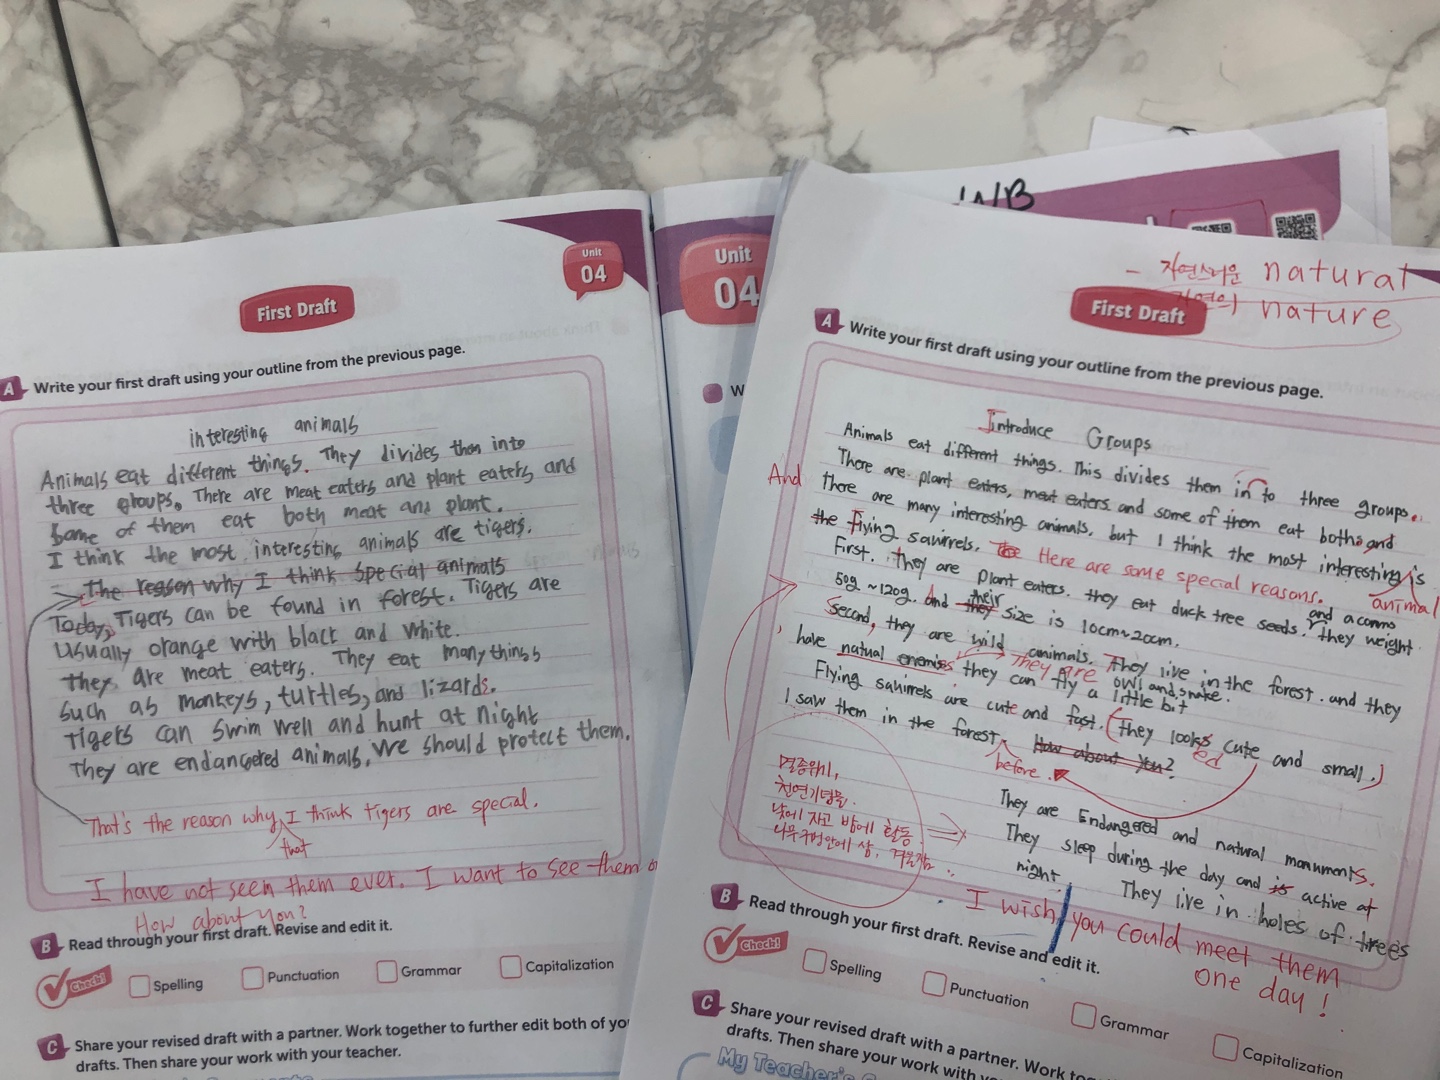 Unit
04
First Draft
A Write your first draft using your outline from the previous page.
interesting animals
Animals eat different things. They divides them into
three groups. There are meat eaters and plant eaters and
Some of them eat both meat and plant.
I think the most interesting animals are tigers.
The reason why I think special animals
Today, Tigers can be found in forest. Tigers are
Usually orange with black and white.
They are meat eaters. They eat many things
such as monkeys, turtles, and lizards.
Tigers can swim well and hunt at night
They are endangered animals. We should protect them.
That's the reason why I think tigers are special.
that
I have not seen them ever. I want to see them
How about you?
B Read through your first draft. Revise and edit it.
Check! Spelling Punctuation Grammar Capitalization
C Share your revised draft with a partner. Work together to further edit both of you
drafts. Then share your work with your teacher.
Unit
04
W
WB
- 자연스러운 natural
자연의 nature
First Draft
A Write your first draft using your outline from the previous page.
Introduce Groups
Animals eat different things. This divides them in to three groups.
There are plant eaters, meat eaters and some of them eat boths and
And
There are many interesting animals, but I think the most interesting is
animal
the Flying squirrels. Here are some special reasons.
First. they are plant eaters. they eat duck tree seeds. they weight
and acorns
50g ~120g. And they size is 10cm~20cm.
their
Second, they are wild animals. They live in the forest. and they
have natural enemies. they can fly a little bit
They are owl and snake.
Flying squirrels are cute and fast. (they looks cute and small.)
ed
I saw them in the forest. How about you?
before.
멸종위기,
천연기념물.
낮에 자고 밤에 활동
나무구멍안에 삶.
They are Endangered and natural manuments.
They sleep during the day and is active at
night
They live in holes of trees
I wish you could meet them
one day!
B Read through your first draft. Revise and edit it.
Check! Spelling Punctuation Grammar Capitalization
C Share your revised draft with a partner. Work tog
drafts. Then share your work with you
My Teacher's